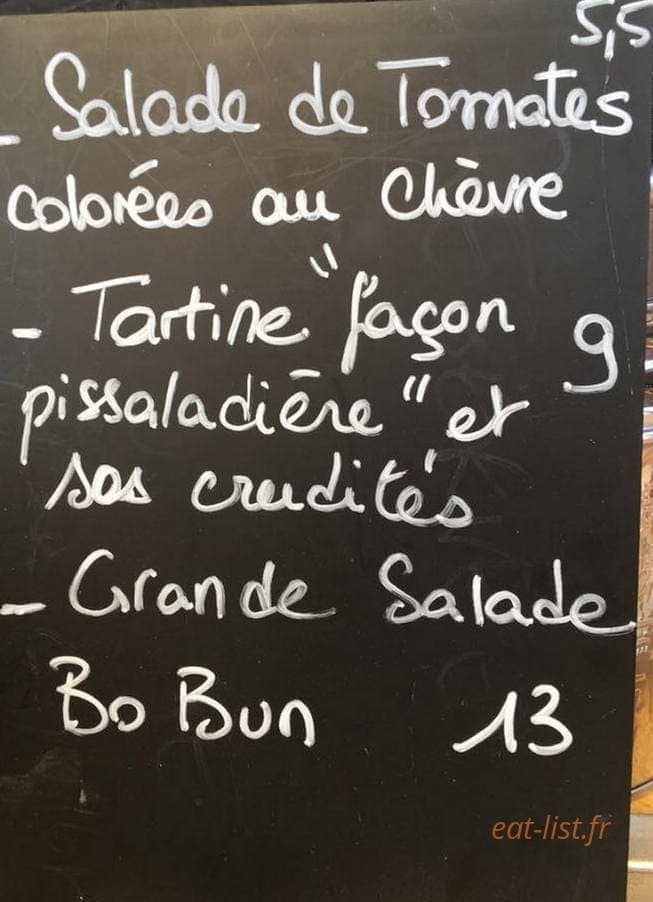 5,5
- Salade de Tomates
colorées au chèvre
- Tartine "façon 9
pissaladière" et
ses crudités
- Grande Salade
Bo Bun 13
eat-list.fr